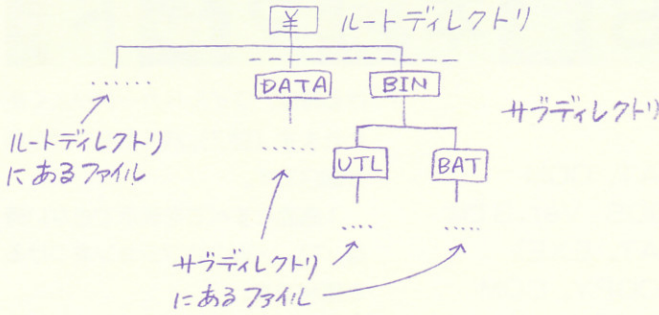 ¥ ルートディレクトリ
...... DATA BIN
サブディレクトリ
ルートディレクトリ
にあるファイル
...... UTL BAT
..... .....
サブディレクトリ
にあるファイル